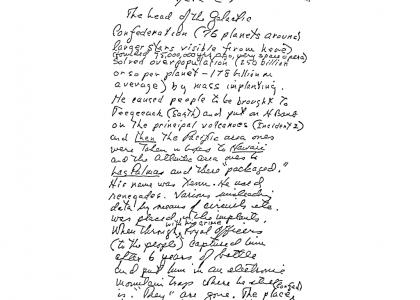 The head of the Galactic
Confederation (76 planets around
larger stars visible from here)
(founded 95,000,000 yrs ago, very space opera)
solved overpopulation (250 billion
or so per planet - 178 billion
average) by mass implanting.
He caused people to be brought to
Teegeeack (Earth) and put an H Bomb
on the principal volcanoes (Incident 2)
and then the Pacific area ones
were taken in boxes to Hawaii
and the Atlantic area ones to
Las Palmas and there "packaged."
His name was Xenu. He used
renegades. Various misleading
data by means of circuits etc.
was placed in the implants.
When through with his crime Loyal Officers
(to the people) captured him
after 6 years of battle
and put him in an electronic
mountain trap where he still
is. "They" are gone. The place